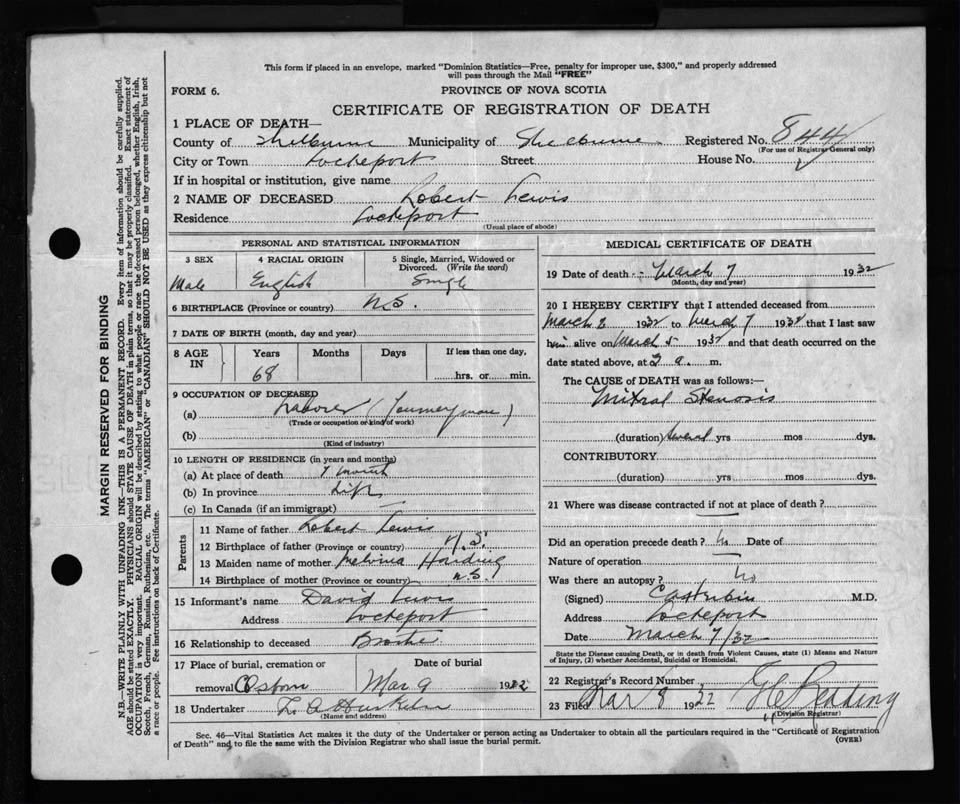 This form if placed in an envelope, marked "Dominion Statistics—Free, penalty for improper use, $300," and properly addressed
will pass through the Mail "FREE"
FORM 6.
PROVINCE OF NOVA SCOTIA
CERTIFICATE OF REGISTRATION OF DEATH
1 PLACE OF DEATH—
County of Shelburne Municipality of Shelburne Registered No. 844
(For use of Registrar General only)
City or Town Lockeport Street House No.
If in hospital or institution, give name
2 NAME OF DECEASED Robert Lewis
Residence Lockeport
(Usual place of abode)
PERSONAL AND STATISTICAL INFORMATION
3 SEX 4 RACIAL ORIGIN 5 Single, Married, Widowed or
Divorced. (Write the word)
Male English Single
6 BIRTHPLACE (Province or country) N.S.
7 DATE OF BIRTH (month, day and year)
8 AGE IN Years Months Days If less than one day,
68 hrs. or min.
9 OCCUPATION OF DECEASED
(a) Laborer (Journeyman)
(Trade or occupation or kind of work)
(b)
(Kind of industry)
10 LENGTH OF RESIDENCE (in years and months)
(a) At place of death 7 month
(b) In province Life
(c) In Canada (if an immigrant)
Parents
11 Name of father Robert Lewis
12 Birthplace of father (Province or country) N.S.
13 Maiden name of mother Melvina Harding
14 Birthplace of mother (Province or country) N.S.
15 Informant's name David Lewis
Address Lockeport
16 Relationship to deceased Brother
17 Place of burial, cremation or Date of burial
removal Osborn Mar 9 1932
18 Undertaker
(Name and address)
MEDICAL CERTIFICATE OF DEATH
19 Date of death March 7 1932
(Month, day and year)
20 I HEREBY CERTIFY that I attended deceased from
March 2 1932 to March 7 1932 that I last saw
him alive on March 5 1932 and that death occurred on the
date stated above, at 2 a. m.
The CAUSE OF DEATH was as follows:—
Mitral Stenosis
(duration) several yrs mos dys.
CONTRIBUTORY
(duration) yrs mos dys.
21 Where was disease contracted if not at place of death?
Did an operation precede death? No Date of
Nature of operation
Was there an autopsy? No
(Signed) M.D.
Address Lockeport
Date March 7/32
State the Disease causing Death, or in death from Violent Causes, state (1) Means and Nature
of Injury, (2) whether Accidental, Suicidal or Homicidal.
22 Registrar's Record Number
23 Filed Mar 8 1932
(Division Registrar)
Sec. 46—Vital Statistics Act makes it the duty of the Undertaker or person acting as Undertaker to obtain all the particulars required in the "Certificate of Registration
of Death" and to file the same with the Division Registrar who shall issue the burial permit.
(OVER)
MARGIN RESERVED FOR BINDING
N.B.—WRITE PLAINLY WITH UNFADING INK—THIS IS A PERMANENT RECORD. Every item of information should be carefully supplied.
AGE should be stated EXACTLY. PHYSICIANS should STATE CAUSE OF DEATH in plain terms, so that it may be properly classified. Exact statement of
OCCUPATION is very important. RACIAL ORIGIN will be described by stating to what people or race the deceased person belonged, whether English, Irish,
Scotch, French, German, Russian, Ruthenian, etc. The terms "AMERICAN" or "CANADIAN" SHOULD NOT BE USED as they express citizenship but not
a race or people. See instructions on back of Certificate.